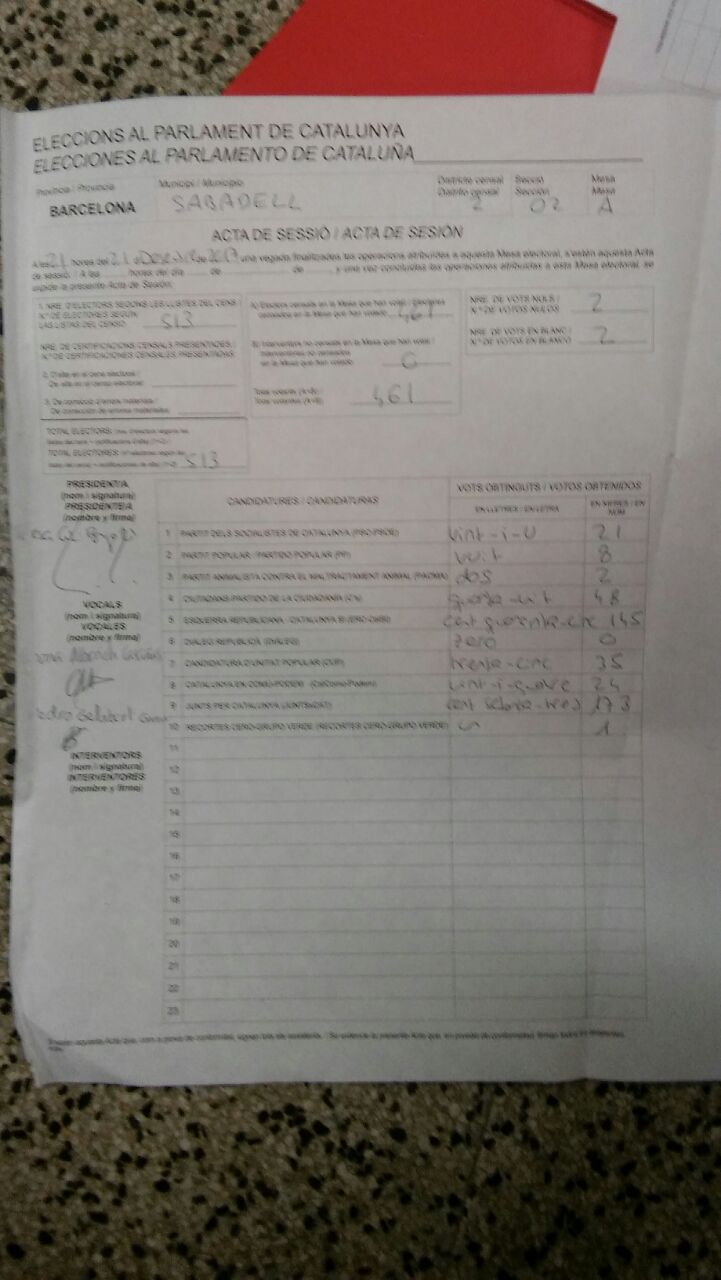 ELECCIONS AL PARLAMENT DE CATALUNYA
ELECCIONES AL PARLAMENTO DE CATALUÑA
Província / Provincia
Municipi / Municipio
Districte censal
Distrito censal
Secció
Sección
Mesa
Mesa
BARCELONA
SABADELL
2
02
A
ACTA DE SESSIÓ / ACTA DE SESIÓN
A les 21 hores del 21 de 2017 una vegada finalitzades les operacions atribuïdes a aquesta Mesa electoral, s'estén aquesta Acta
de sessió. / A las horas del día de de , y una vez concluidas las operaciones atribuidas a esta Mesa electoral, se
expide la presente Acta de Sesión:
1. NRE. D'ELECTORS SEGONS LES LLISTES DEL CENS
N.º DE ELECTORES SEGÚN
LAS LISTAS DEL CENSO
513
NRE. DE CERTIFICACIONS CENSALS PRESENTADES /
N.º DE CERTIFICACIONES CENSALES PRESENTADAS
2. D'alta en el cens electoral /
De alta en el censo electoral
3. De correcció d'errors materials /
De corrección de errores materiales
TOTAL ELECTORS:
TOTAL ELECTORES:
513
A) Electors censats en la Mesa que han votat / Electores
censados en la Mesa que han votado
461
B) Interventors no censats en la Mesa que han votat /
Interventores no censados
en la Mesa que han votado
0
Total votants (A+B) /
Total votantes (A+B)
461
NRE. DE VOTS NULS /
N.º DE VOTOS NULOS
2
NRE. DE VOTS EN BLANC /
N.º DE VOTOS EN BLANCO
2
PRESIDENT/A
(nom i signatura)
PRESIDENTE/A
(nombre y firma)
VOCALS
(nom i signatura)
VOCALES
(nombre y firma)
Pedro Gelabert
INTERVENTORS
(nom i signatura)
INTERVENTORES
(nombre y firma)
CANDIDATURES / CANDIDATURAS
VOTS OBTINGUTS / VOTOS OBTENIDOS
EN LLETRES / EN LETRA
EN XIFRES / EN NÚM
1 PARTIT DELS SOCIALISTES DE CATALUNYA (PSC-PSOE) vint-i-u 21
2 PARTIT POPULAR / PARTIDO POPULAR (PP) vuit 8
3 PARTIT ANIMALISTA CONTRA EL MALTRACTAMENT ANIMAL (PACMA) dos 2
4 CIUTADANS-PARTIDO DE LA CIUDADANÍA (C's) 48
5 ESQUERRA REPUBLICANA - CATALUNYA SÍ (ERC-CatSí) 145
6 DIÀLEG REPUBLICÀ (DIÀLEG) zero 0
7 CANDIDATURA D'UNITAT POPULAR (CUP) trenta-cinc 35
8 CATALUNYA EN COMÚ-PODEM (CatComú-Podem) vint-i-quatre 24
9 JUNTS PER CATALUNYA (JUNTSxCAT) cent setanta-tres 173
10 RECORTES CERO-GRUPO VERDE (RECORTES CERO-GRUPO VERDE) 1
11
12
13
14
15
16
17
18
19
20
21
22
23